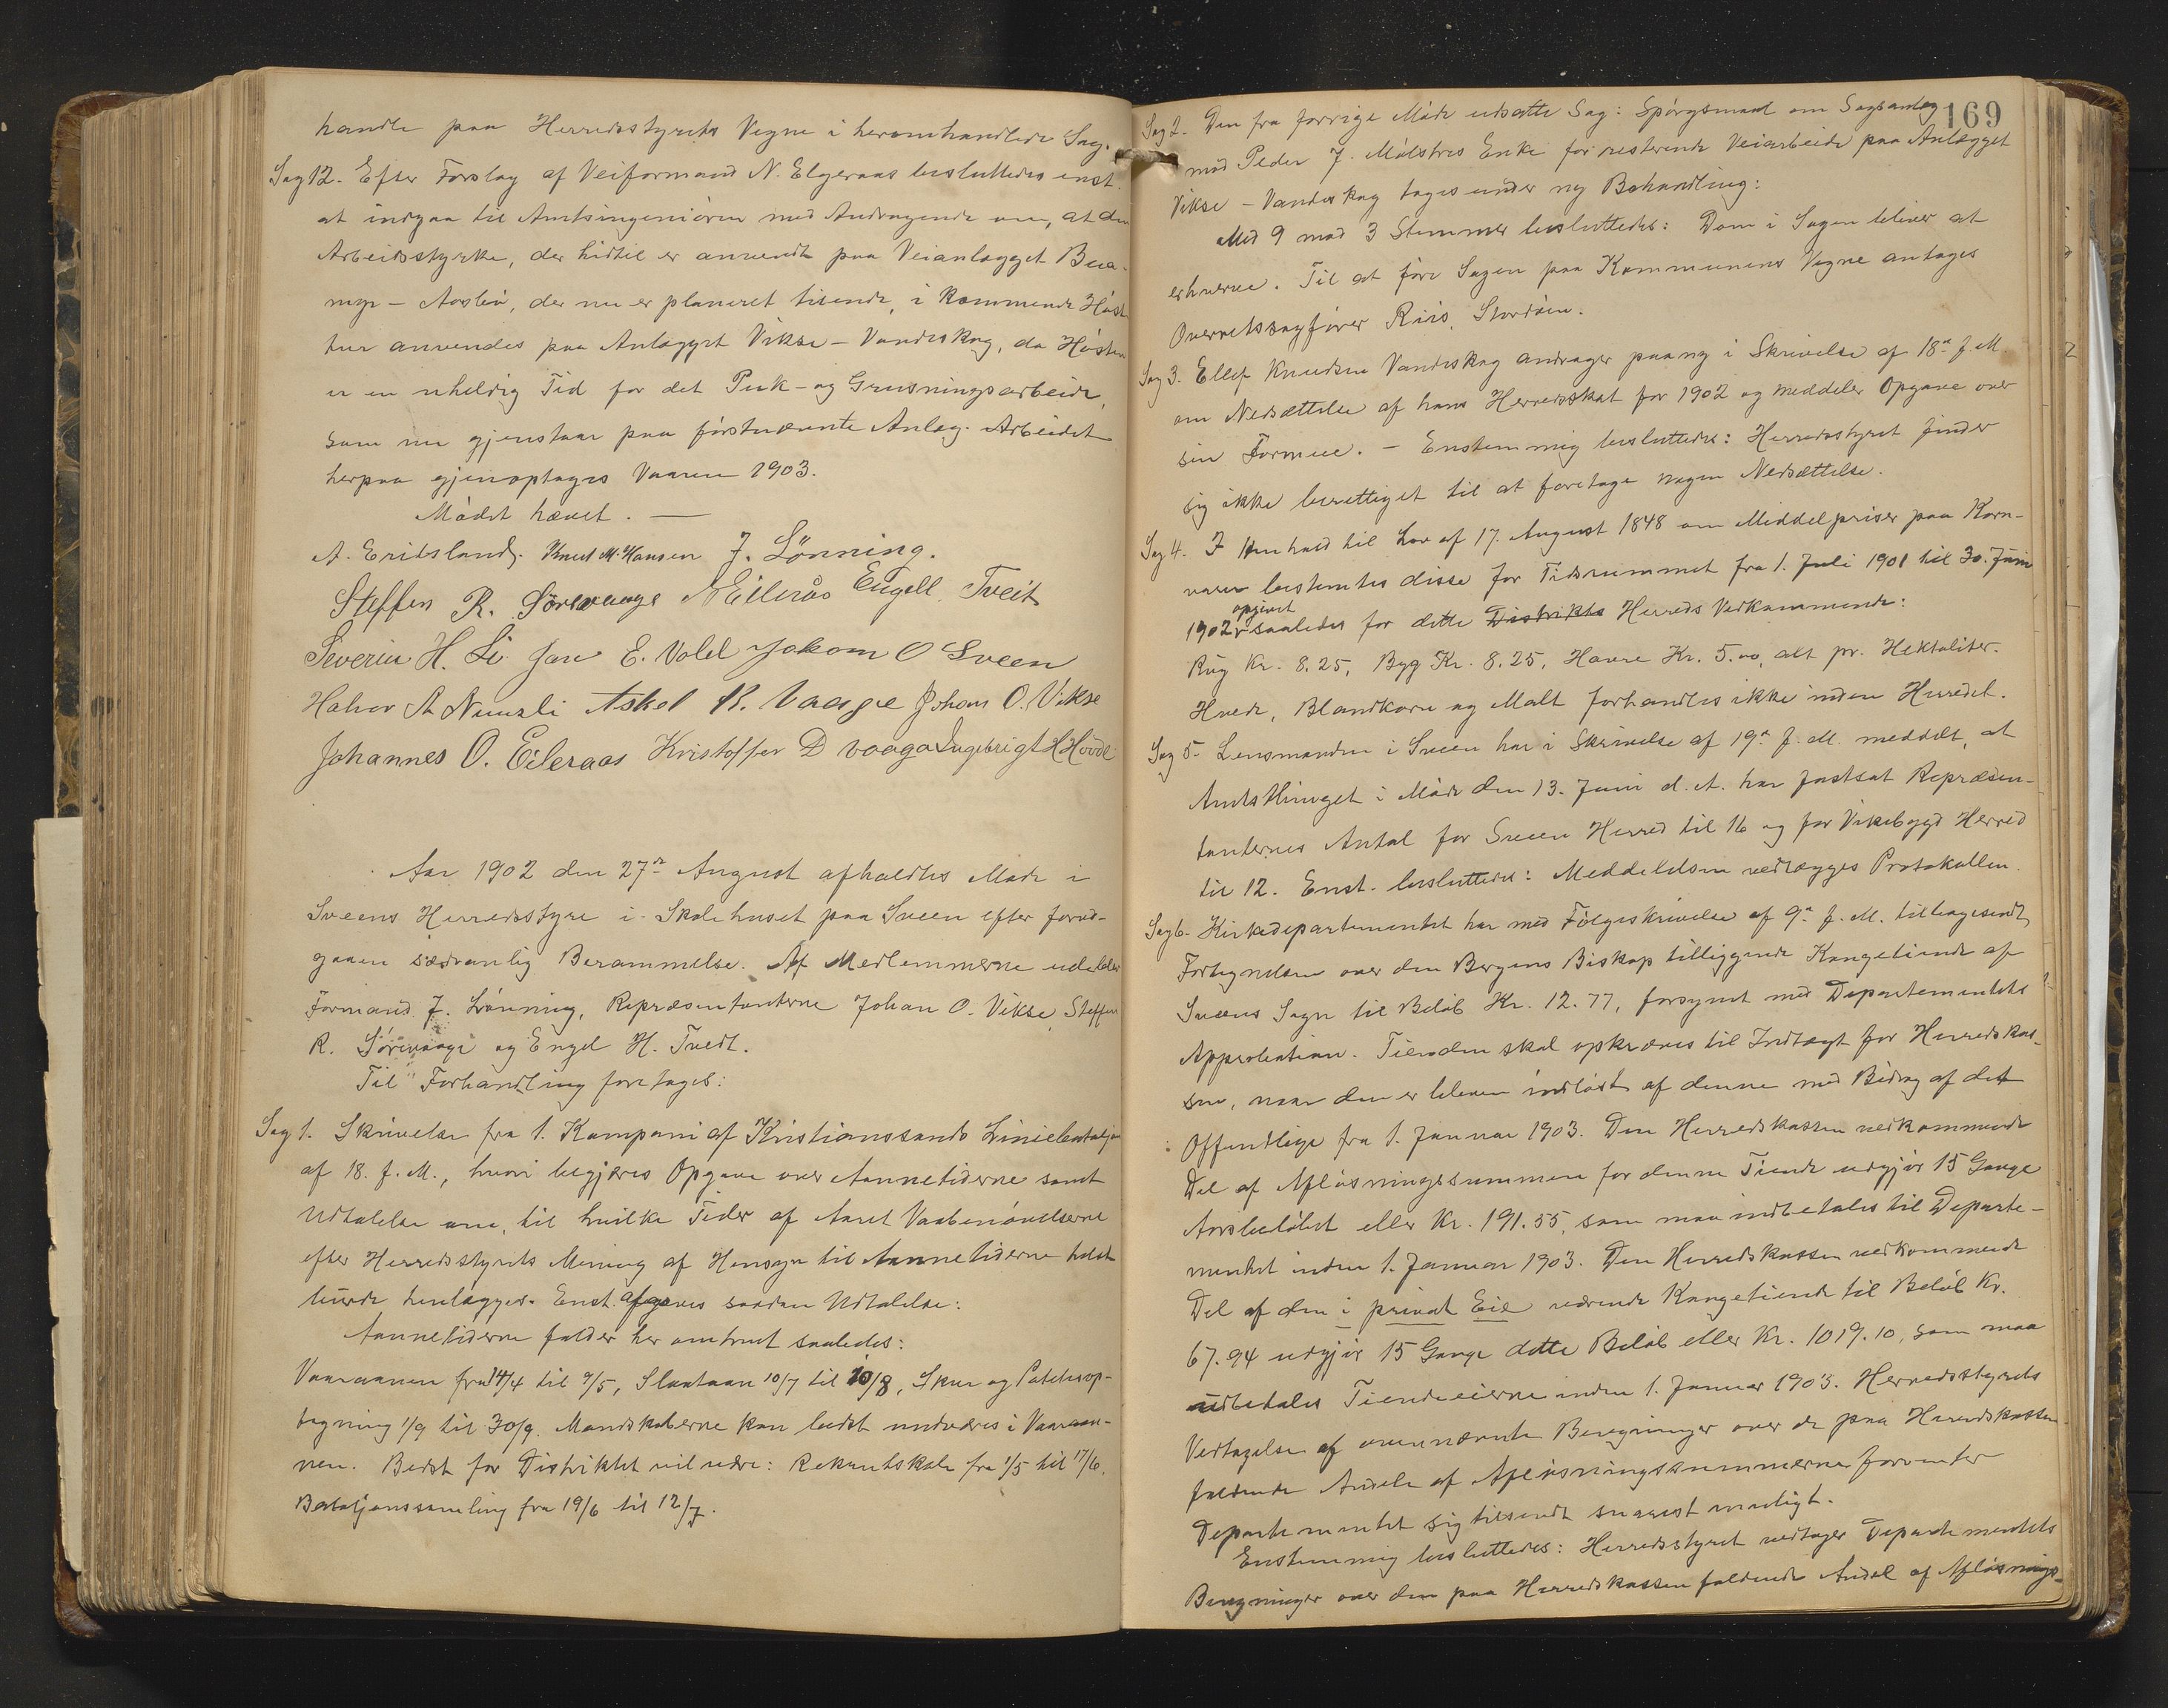 handle paa Herredsstyrets Vegne i heromhandlede Sag.
Sag 12. Efter Forslag af Veiformand N. Elgeraas besluttedes enst.
at indgaa til Amtsingeniøren med Andragende om, at den
Arbeidsstyrke, der hidtil er anvendt paa Veianlægget Bua-
myr - Aasbu, der nu er planeret tilende, i kommende Høst
bør anvendes paa Anlægget Vikse - Vandeskog, da Høsten
er en uheldig Tid for det Puk- og Grusningsarbeide,
som nu gjenstaar paa førstnævnte Anlæg. Arbeidet
herpaa gjenoptages Vaaren 1903.
Mødet hævet. —
A. Eridsland. Knut M. Hansen J. Lønning.
Steffen R. Sørevaage N Eilerås Engell. Tveit
Severin H. Li Jan E. Vold Jakom O Sveen
Halvor A Nernsli Askel K. Vaage Johan O. Vikse
Johannes O. Eileraas Kristoffer D vaaga Ingebrigt H Hovde
Aar 1902 den 27de August afholdtes Møde i
Sveens Herredsstyre i Skolehuset paa Sveen efter forud-
gaaen sædvanlig Berammelse. Af Medlemmerne udeblev
Formand J. Lønning, Repræsentanterne Johan O. Vikse, Steffen
R. Sørevaage og Engel H. Tvedt.
Til Forhandling foretages:
Sag 1. Skrivelse fra 1. Kompani af Kristianssands Liniebataljon
af 18. f. M., hvori begjæres Opgave over Aannetiderne samt
Udtalelse om, til hvilke Tider af Aaret Vaabenøvelserne
efter Herredsstyrets Mening af Hensyn til Aannetiderne helst
burde henlægges. Enst. afgaves saadan Udtalelse:
Aannetiderne falder her omtrent saaledes:
Vaaraanen fra 14/4 til 9/5, Slaataan 10/7 til 10/8, Skur og Potetesop-
tagning 1/9 til 30/9. Mandskaberne kan bedst undværes i Vaaraan-
nen. Bedst for Distriktet vil være: Rekrutskole fra 1/5 til 17/6.
Bataljonssamling fra 19/6 til 12/7.
169
Sag 2. Den fra forrige Møde udsatte Sag: Spørgsmaal om Sagsanlæg
mod Peder J. Mølstres Enke for resterende Veiarbeide paa Anlægget
Vikse - Vandeskog toges under ny Behandling:
Med 9 mod 3 Stemmer besluttedes: Dom i Sagen bliver at
erhverve. Til at føre Sagen paa Kommunens Vegne antages
Overretssagfører Riis, Stordøen.
Sag 3. Ellef Knudsen Vandeskog andrager paany i Skrivelse af 18de f. M.
om Nedsættelse af hans Herredsskat for 1902 og meddeler Opgave over
sin Formue. - Enstemmig besluttedes: Herredsstyret finder
sig ikke berettiget til at foretage nogen Nedsættelse.
Sag 4. I Henhold til Lov af 17. August 1848 om Middelpriser paa Korn-
varer bestemtes disse for Tidsrummet fra 1. Juli 1901 til 30. Juni
opgivet
1902 saaledes for dette Distrikts Herreds Vedkommende:
Rug Kr. 8.25, Byg Kr. 8.25, Havre Kr. 5.00, alt pr. Hektoliter.
Hvede, Blandkorn og Malt forhandles ikke inden Herredet.
Sag 5. Lensmanden i Sveen har i Skrivelse af 19de f. M. meddelt, at
Amtsthinget i Møde den 13. Juni d. A. har fastsat Repræsen-
tanternes Antal for Sveen Herred til 16 og for Vikebygd Herred
til 12. Enst. besluttedes: Meddelelsen vedlægges Protokollen.
Sag 6. Kirkedepartementet har med Følgeskrivelse af 9de f. M. tilbagesendt
Fortegnelsen over den Bergens Biskop tilliggende Kongetiende af
Sveens Sogn til Beløb Kr. 12.77, forsynet med Departementets
Approbation. Tienden skal opkræves til Indtægt for Herredskas-
sen, naar den er bleven indløst af denne med Bidrag af det
Offentlige fra 1. Januar 1903. Den Herredskassen vedkommende
Del af Afløsningssummen for denne Tiende udgjør 15 Gange
Aarsbeløbet eller Kr. 191.55, som maa indbetales til Departe-
mentet inden 1. Januar 1903. Den Herredskassen vedkommende
Del af den i privat Eie værende Kongetiende til Beløb Kr.
67.94 udgjør 15 Gange dette Beløb eller Kr. 1019.10, som maa
udbetales Tiendeeierne inden 1. Januar 1903. Herredsstyrets
Vedtagelse af ovennævnte Beregninger over de paa Herredskassen
faldende Andele af Afløsningssummerne forventer
Departementet sig tilsendt snarest muligt.
Enstemmig besluttedes: Herredsstyret vedtager Departementets
Beregninger over den paa Herredskassen faldende Andel af Afløsnings-